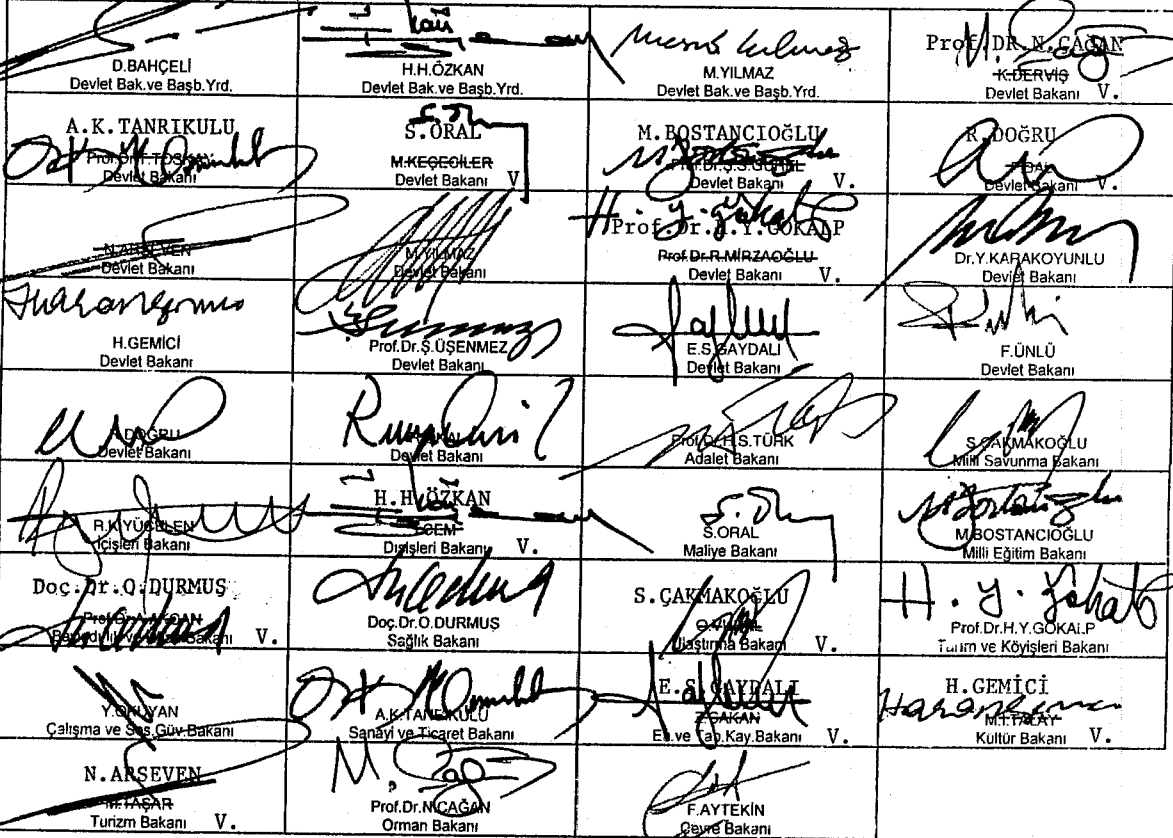 D.BAHÇELİ
Devlet Bak.ve Başb.Yrd.
H.H.ÖZKAN
Devlet Bak.ve Başb.Yrd.
M.YILMAZ
Devlet Bak.ve Başb.Yrd.
Prof.DR.N.ÇAĞAN
K.DERVİŞ
Devlet Bakanı V.
A.K.TANRIKULU
Devlet Bakanı
S.ORAL
M.KEÇECİLER
Devlet Bakanı V
M.BOSTANCIOĞLU
Devlet Bakanı V.
R.DOĞRU
Devlet Bakanı V.
N.ARSEVEN
Devlet Bakanı
M.YILMAZ
Devlet Bakanı
Prof.Dr.H.Y.GÖKALP
Prof.Dr.R.MİRZAOĞLU
Devlet Bakanı V.
Dr.Y.KARAKOYUNLU
Devlet Bakanı
H.GEMİCİ
Devlet Bakanı
Prof.Dr.Ş.ÜŞENMEZ
Devlet Bakanı
E.S.GAYDALI
Devlet Bakanı
F.ÜNLÜ
Devlet Bakanı
R.DOĞRU
Devlet Bakanı
Devlet Bakanı
Prof.Dr.H.S.TÜRK
Adalet Bakanı
S.ÇAKMAKOĞLU
Milli Savunma Bakanı
R.K.YÜCELEN
İçişleri Bakanı
H.H.ÖZKAN
İ.CEM
Dışişleri Bakanı V.
S.ORAL
Maliye Bakanı
M.BOSTANCIOĞLU
Milli Eğitim Bakanı
Doç.Dr.O.DURMUŞ
Bakanı V.
Doç.Dr.O.DURMUŞ
Sağlık Bakanı
S.ÇAKMAKOĞLU
Ulaştırma Bakanı V.
H. Y. Gökalp
Prof.Dr.H.Y.GÖKALP
Tarım ve Köyişleri Bakanı
Y.OKUYAN
Çalışma ve Sos.Güv.Bakanı
A.K.TANRIKULU
Sanayi ve Ticaret Bakanı
E.S.GAYDALI
Z.ÇAKAN
En.ve Tab.Kay.Bakanı V.
H.GEMİCİ
M.İ.TALAY
Kültür Bakanı V.
N.ARSEVEN
M.TAŞAR
Turizm Bakanı V.
Prof.Dr.N.ÇAĞAN
Orman Bakanı
F.AYTEKİN
Çevre Bakanı